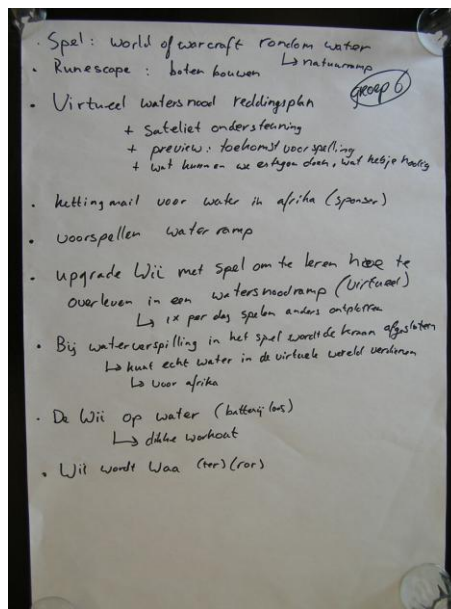 · Spel: world of warcraft rondom water
↳ natuurramp
· Runescape : boten bouwen
groep 6
· Virtueel watersnood reddingsplan
+ sateliet ondersteuning
+ preview: toekomst voorspelling
+ wat kunnen we ertegen doen, wat heb je nodig
· kettingmail voor water in afrika (sponsor)
· voorspellen water ramp
· upgrade Wii met spel om te leren hoe te
overleven in een watersnoodramp (virtueel)
↳ 1x per dag spelen anders ontploffen
· Bij waterverspilling in het spel wordt de kraan afgesloten
↳ kunt echt water in de virtuele wereld verdienen
↳ voor afrika
· De Wii op water (batterijloos)
↳ dikke workout
· Wii wordt Waa (ter) (ror)